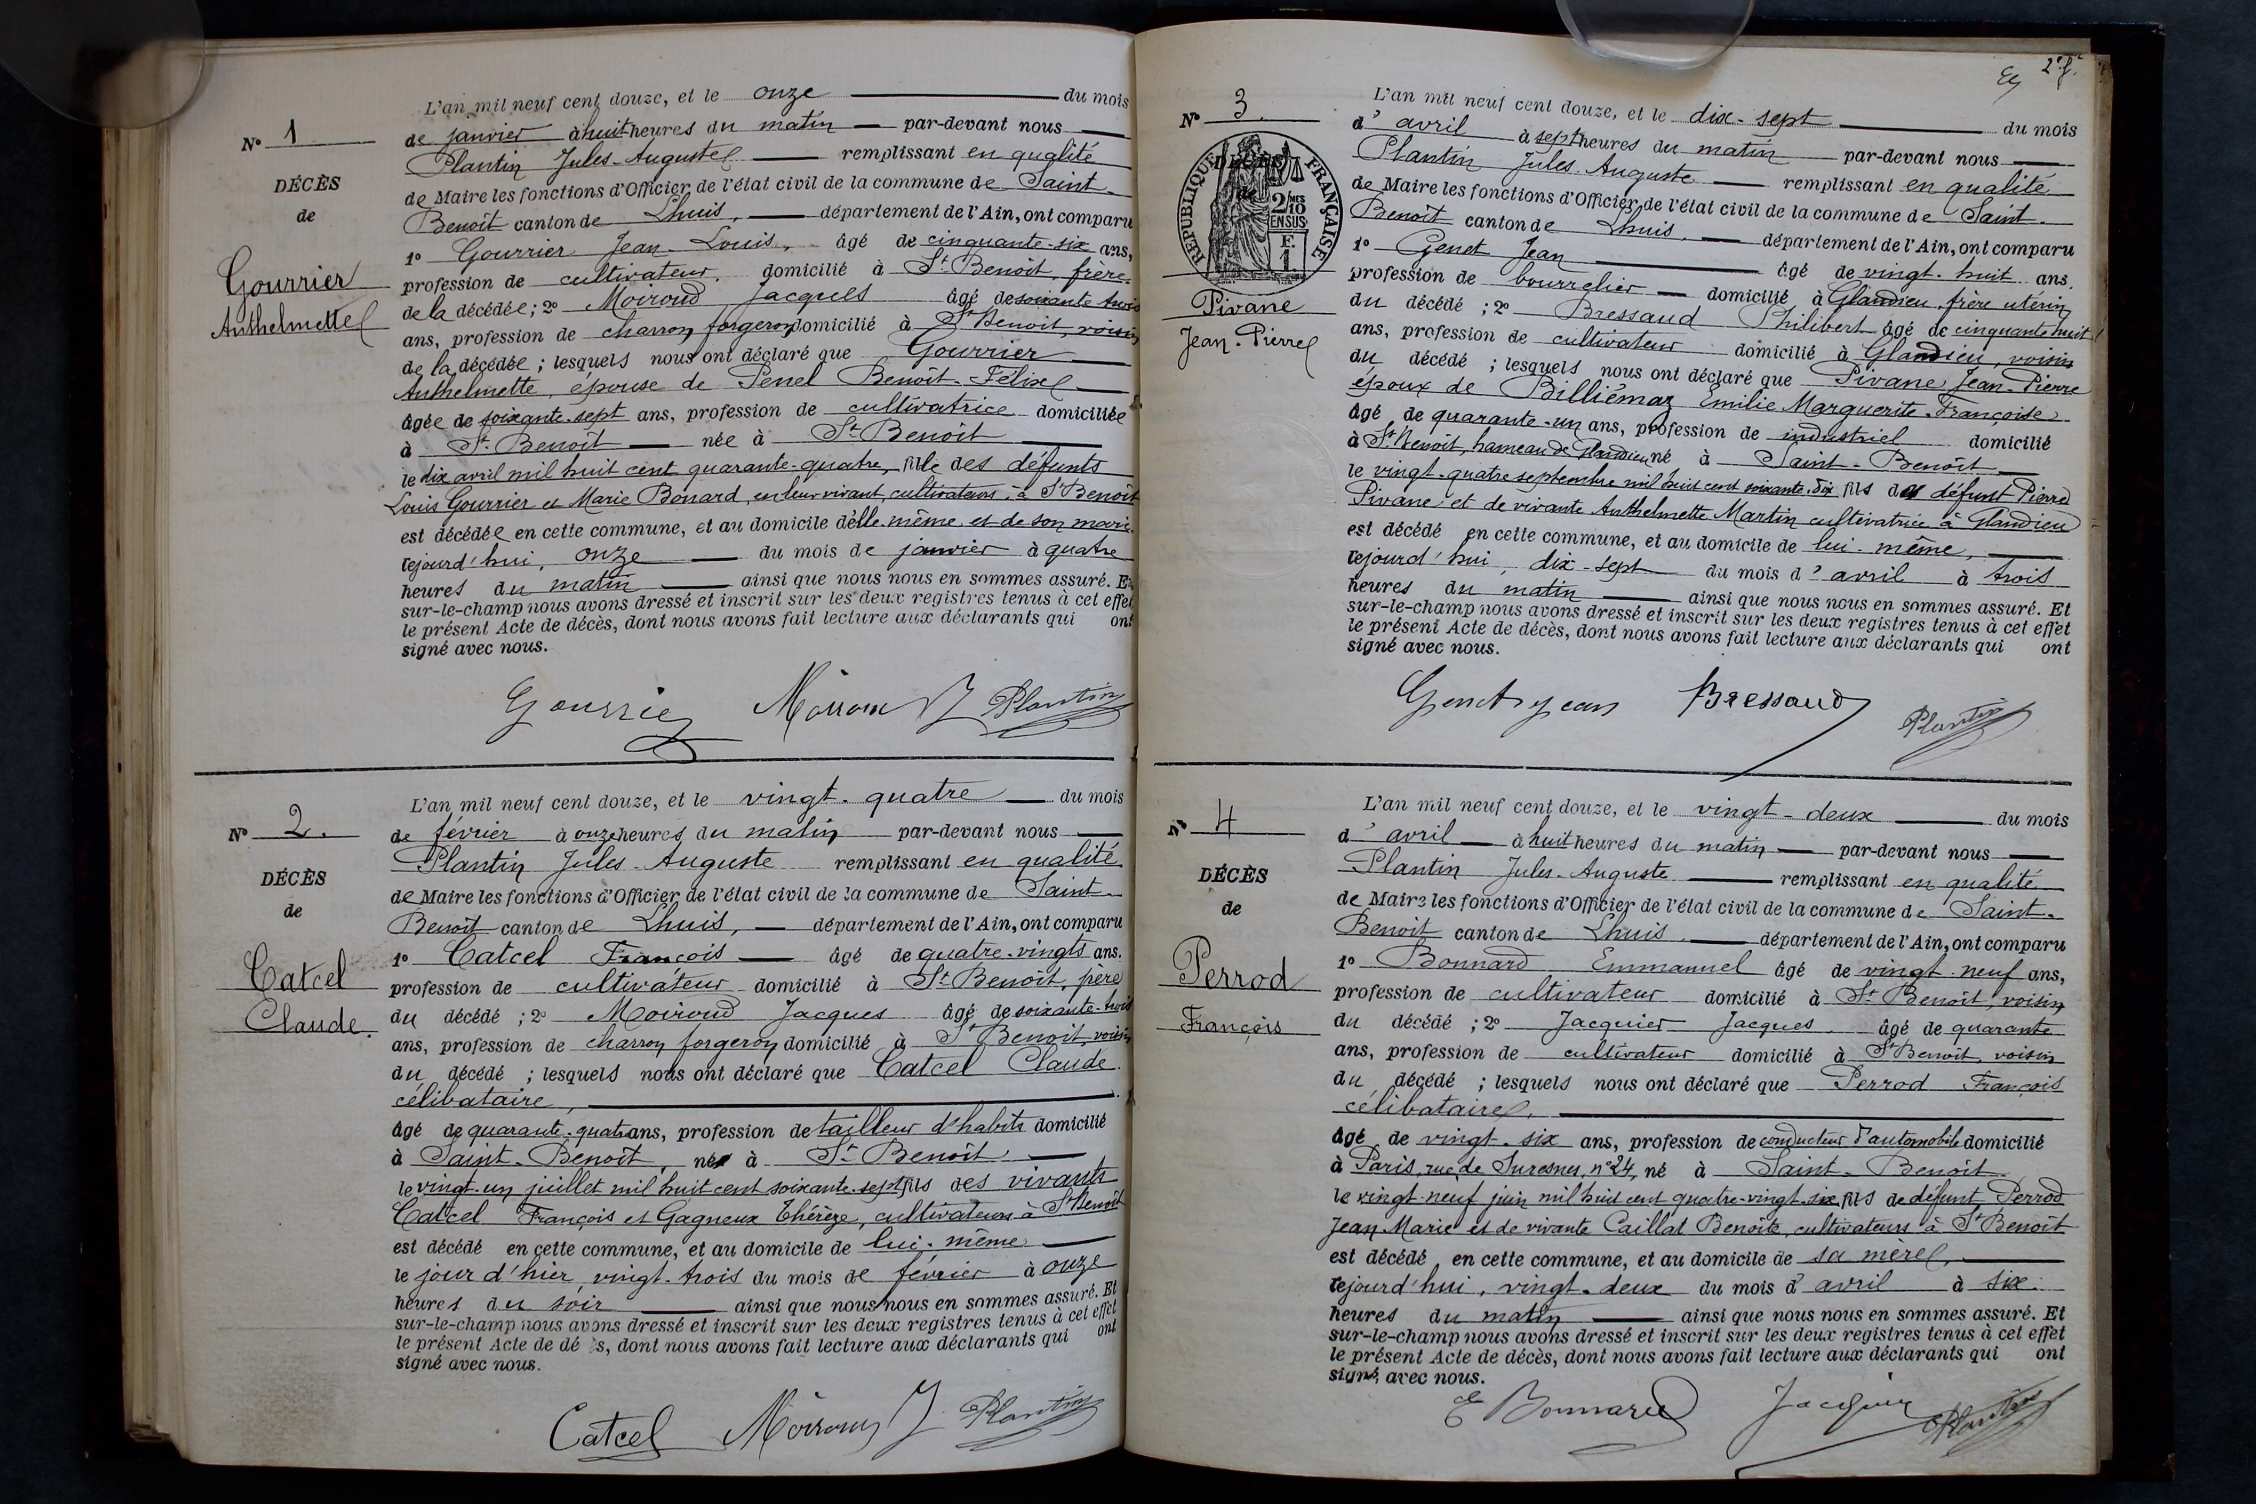 L'an mil neuf cent douze, et le onze du mois
de janvier à huit heures du matin par-devant nous
Plantin Jules-Auguste remplissant en qualité
de Maire les fonctions d'Officier de l'état civil de la commune de Saint-
Benoît canton de Lhuis, département de l'Ain, ont comparu
1º Gourrier Jean-Louis, âgé de cinquante-six ans,
profession de cultivateur, domicilié à St Benoît, frère
de la décédée ; 2º Moiroud Jacques âgé de soixante trois
ans, profession de charron forgeron domicilié à St Benoît, voisin
de la décédée ; lesquels nous ont déclaré que Gourrier
Anthelmette, épouse de Penel Benoît-Félix
âgée de soixante-sept ans, profession de cultivatrice domiciliée
à St Benoît née à St Benoît
le dix avril mil huit cent quarante-quatre, fille des défunts
Louis Gourrier et Marie Bonard, en leur vivant, cultivateurs à St Benoît
est décédée en cette commune, et au domicile d'elle-même et de son mari
cejourd'hui, onze du mois de janvier à quatre
heures du matin ainsi que nous nous en sommes assuré. Et
sur-le-champ nous avons dressé et inscrit sur les deux registres tenus à cet effet
le présent Acte de décès, dont nous avons fait lecture aux déclarants qui ont
signé avec nous.
Nº 1
DÉCÈS
de
Gourrier
Anthelmette
Gourrier Moiroud J Plantin
L'an mil neuf cent douze, et le vingt-quatre du mois
de février à onze heures du matin par-devant nous
Plantin Jules-Auguste remplissant en qualité
de Maire les fonctions d'Officier de l'état civil de la commune de Saint-
Benoît canton de Lhuis, département de l'Ain, ont comparu
1º Catcel François âgé de quatre-vingts ans.
profession de cultivateur domicilié à St Benoît, père
du décédé ; 2º Moiroud Jacques âgé de soixante-trois
ans, profession de charron forgeron domicilié à St Benoît, voisin
du décédé ; lesquels nous ont déclaré que Catcel Claude
célibataire,
âgé de quarante-quatre ans, profession de tailleur d'habits domicilié
à Saint-Benoît, né à St Benoît
le vingt-un juillet mil huit cent soixante-sept fils des vivants
Catcel François et Gagneux Thérèze, cultivateurs à St Benoît
est décédé en cette commune, et au domicile de lui-même
le jour d'hier vingt-trois du mois de février à onze
heures du soir ainsi que nous nous en sommes assuré. Et
sur-le-champ nous avons dressé et inscrit sur les deux registres tenus à cet effet
le présent Acte de dé s, dont nous avons fait lecture aux déclarants qui ont
signé avec nous.
Nº 2.
DÉCÈS
de
Catcel
Claude.
Catcel Moiroud J Plantin
2e f.
L'an mil neuf cent douze, et le dix-sept du mois
d'avril à sept heures du matin par-devant nous
Plantin Jules-Auguste remplissant en qualité
de Maire les fonctions d'Officier de l'état civil de la commune de Saint-
Benoît canton de Lhuis, département de l'Ain, ont comparu
1º Genet Jean âgé de vingt-huit ans,
profession de bourrelier domicilié à Glandieu, frère utérin
du décédé ; 2º Bressaud Philibert âgé de cinquante huit
ans, profession de cultivateur domicilié à Glandieu, voisin
du décédé ; lesquels nous ont déclaré que Pivane Jean-Pierre
époux de Billiémaz Emilie Marguerite-Françoise
âgé de quarante-un ans, profession de industriel domicilié
à St Benoît, hameau de Glandieu né à Saint-Benoît
le vingt-quatre septembre mil huit cent soixante-dix fils de défunt Pierre
Pivane et de vivante Anthelmette Martin cultivatrice à Glandieu
est décédé en cette commune, et au domicile de lui-même,
cejourd'hui, dix-sept du mois d'avril à trois
heures du matin ainsi que nous nous en sommes assuré. Et
sur-le-champ nous avons dressé et inscrit sur les deux registres tenus à cet effet
le présent Acte de décès, dont nous avons fait lecture aux déclarants qui ont
signé avec nous.
Nº 3.
DÉCÈS
de
RÉPUBLIQUE FRANÇAISE
2/10 MES
EN SUS
F.
1
Pivane
Jean-Pierre
Genet jean Bressaud Plantin
L'an mil neuf cent douze, et le vingt-deux du mois
d'avril à huit heures du matin par-devant nous
Plantin Jules-Auguste remplissant en qualité
de Maire les fonctions d'Officier de l'état civil de la commune de Saint-
Benoît canton de Lhuis, département de l'Ain, ont comparu
1º Bonnard Emmanuel âgé de vingt-neuf ans,
profession de cultivateur domicilié à St Benoît, voisin
du décédé ; 2º Jacquier Jacques âgé de quarante
ans, profession de cultivateur domicilié à St Benoît, voisin
du décédé ; lesquels nous ont déclaré que Perrod François
célibataire,
âgé de vingt-six ans, profession de conducteur d'automobile domicilié
à Paris, rue de Suresnes, nº 24, né à Saint-Benoît
le vingt-neuf juin mil huit cent quatre-vingt-six, fils de défunt Perrod
Jean-Marie et de vivante Caillat Benoîte, cultivateurs à St Benoît
est décédé en cette commune, et au domicile de sa mère,
cejourd'hui, vingt-deux du mois d'avril à six
heures du matin ainsi que nous nous en sommes assuré. Et
sur-le-champ nous avons dressé et inscrit sur les deux registres tenus à cet effet
le présent Acte de décès, dont nous avons fait lecture aux déclarants qui ont
signé avec nous.
Nº 4
DÉCÈS
de
Perrod
François
E Bonnard Jacquier Plantin